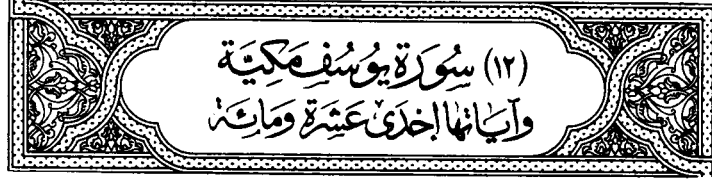 (١٢) سُورَةُ يُوسُفَ مَكِيَّة
وَآيَاتُهَا إِحْدَىٰ عَشَرَة وَمِائَة